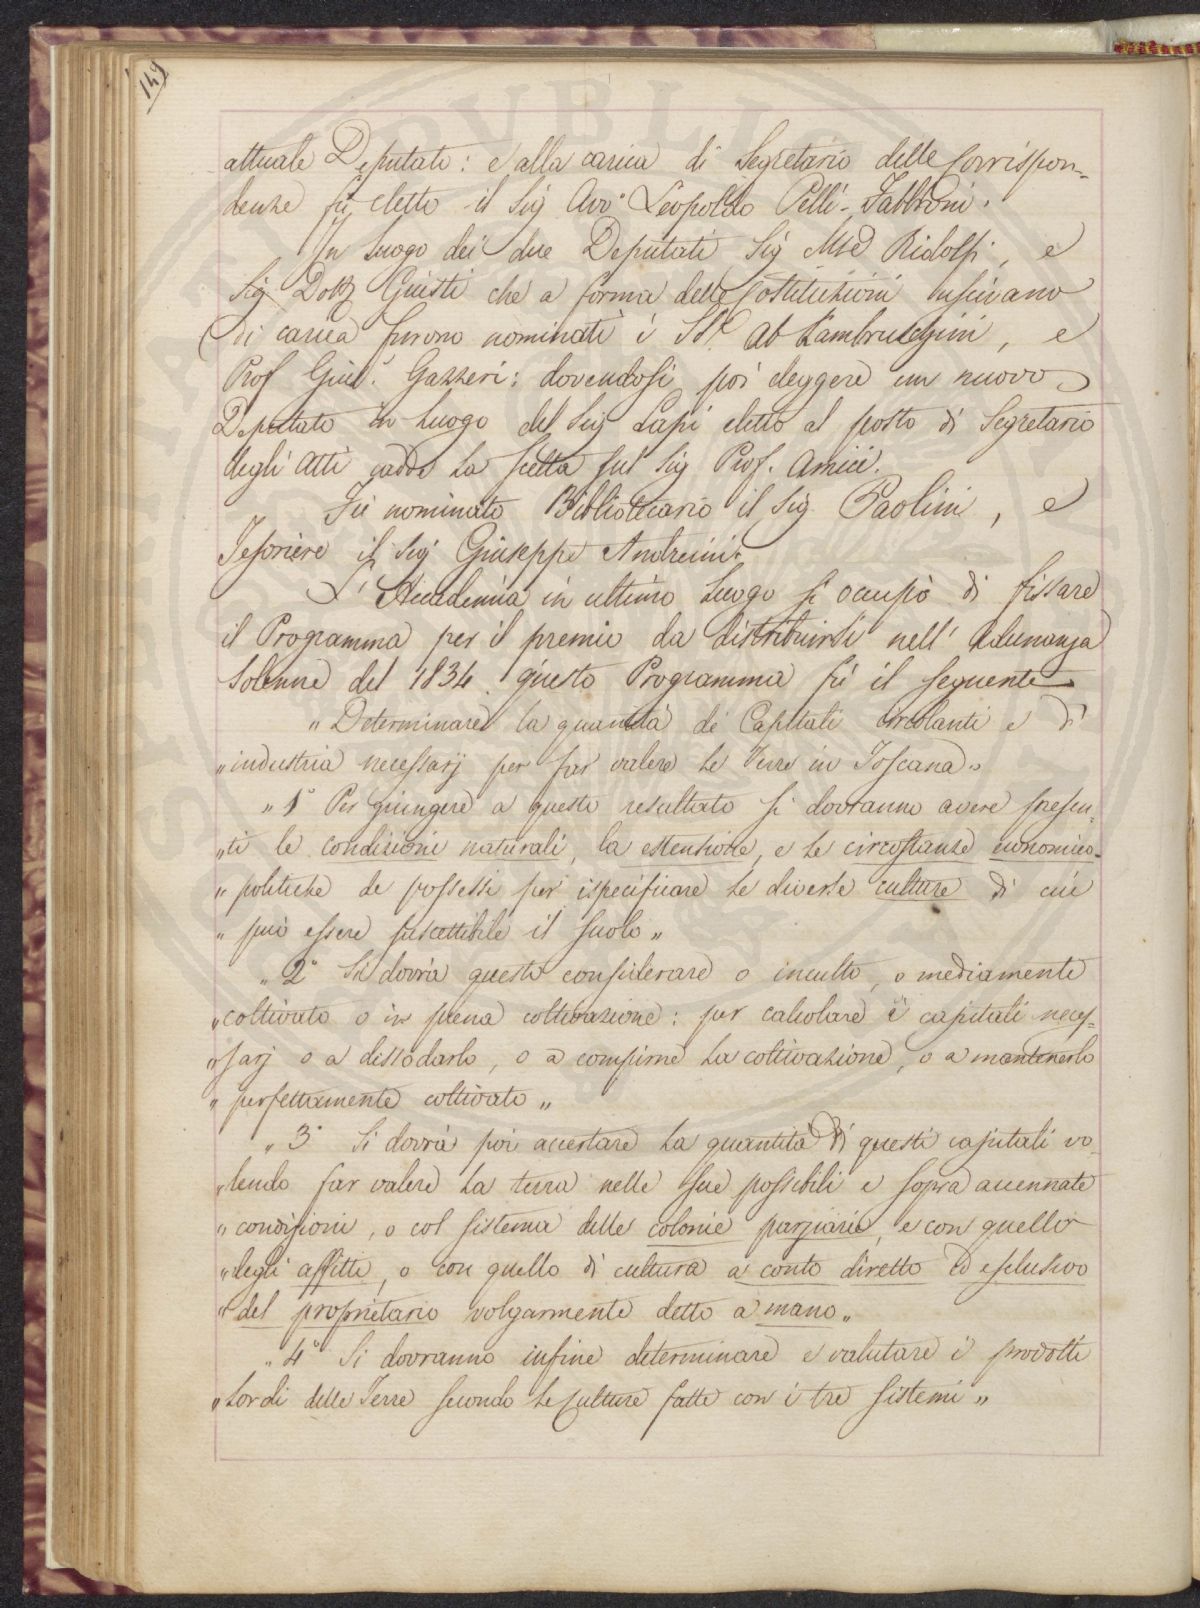 149
attuale Deputato: e alla carica di Segretario delle Corrispon-
denze fù eletto il Sig Avv° Leopoldo Pelli-Fabbroni.
In luogo dei due Deputati Sig Mse Ridolfi, e
Sig Dott Giusti che a forma delle Costituzioni uscivano
di carica furono nominati i SSri Ab Lambruschini, e
Prof Gius.e Gazzeri: dovendosi poi eleggere un nuovo
Deputato in luogo del Sig Lapi eletto al posto di Segretario
degli Atti cadde la scelta sul Sig Prof. Amici.
Fù nominato Bibliotecario il Sig Paolini, e
Tesoriere il Sig Giuseppe Andreini.
L'Accademia in ultimo luogo si occupò di fissare
il Programma per il premio da distribuirsi nell' Adunanza
Solenne del 1834. questo Programma fù il seguente
„Determinare la quantità di Capitali circolanti e d'
„industria necessarj per far valere le Terre in Toscana.
„1° Per giungere a questo resultato si dovranno avere presen-
„ti le condizioni naturali, la estensione, e le circostanze economico-
„politiche de possessi per ispecificare le diverse culture di cui
„può essere suscettibile il suolo„
„2° Si dovrà questo considerare o inculto, o mediamente
„coltivato o in piena coltivazione: per calcolare i capitali neces-
„sarj o a dissodarlo, o a compirne la coltivazione, o a mantenerlo
„perfettamente coltivato„
„3° Si dovrà poi accertare la quantità di questi capitali vo-
„lendo far valere la terra nelle sue possibili e sopra accennate
„condizioni, o col sistema delle colonie parziarie, e con quello
„degli affitti, o con quello di cultura a conto diretto ed esclusivo
„del proprietario volgarmente detto a mano„
„4° Si dovranno infine determinare e valutare i prodotti
„lordi delle Terre secondo le Culture fatte con i tre sistemi„